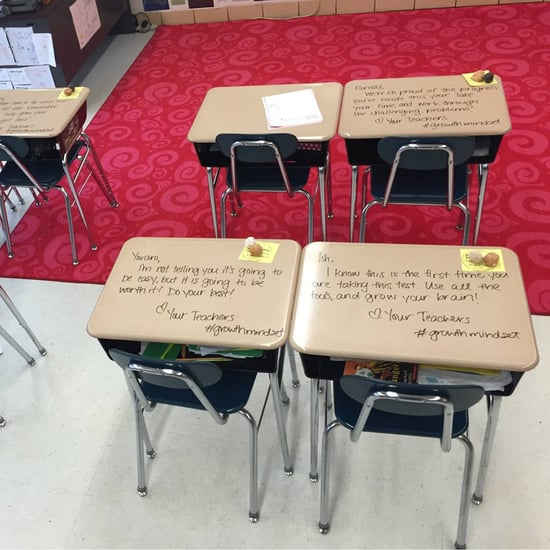 Ronald,
We're so proud of the progress
you've made this year. Take
your time, and work through
the challenging problems!
♡ Your Teachers
#growthmindset
Yovani,
I'm not telling you it's going to
be easy, but it is going to be
worth it! Do your best!
♡ Your Teachers
#growthmindset
Ish,
I know this is the first time you
are taking this test. Use all the
tools, and grow your brain!
♡ Your Teachers
#growthmindset